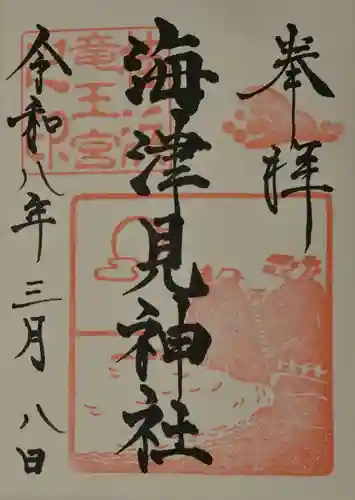 奉拝
海津見神社
令和八年三月八日
竜王宮